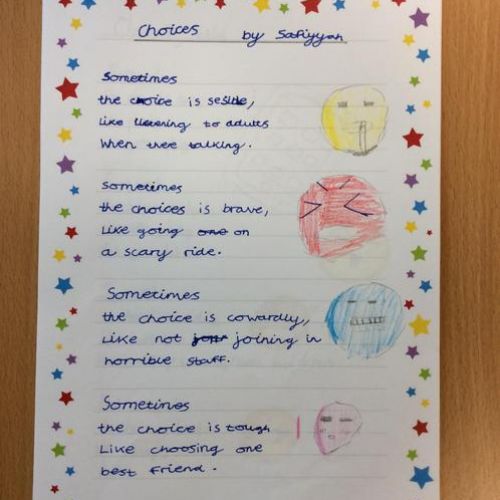 Choices by Safiyyah
Sometimes
the choice is
like listening to adults
when there talking.
Sometimes
the choices is brave,
Like going on
a scary ride.
Sometimes
the choice is cowardly,
Like not joining in
horrible stuff.
Sometimes
the choice is tough
Like choosing one
best friend.